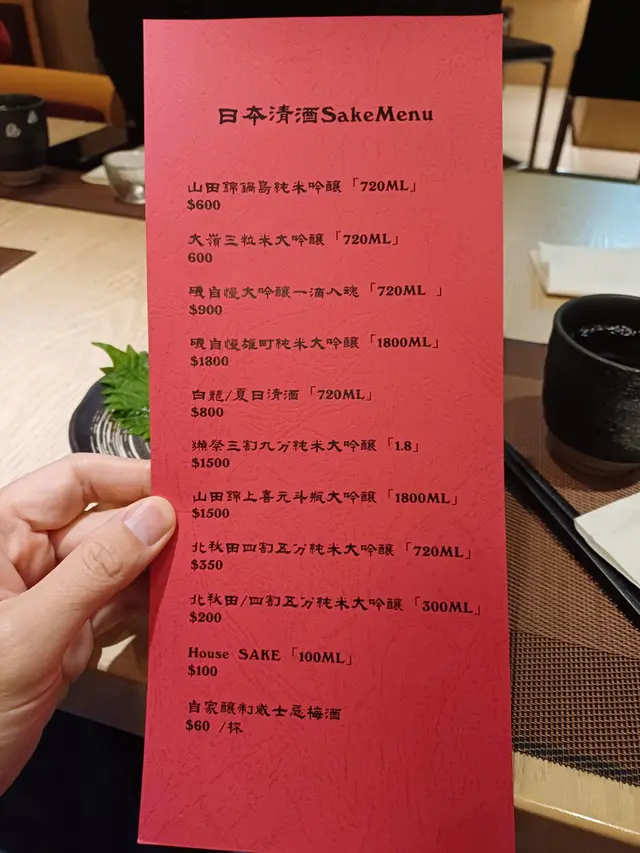 日本清酒SakeMenu
山田錦鍋島純米吟釀「720ML」
$600
大嶺三粒米大吟釀「720ML」
600
磯自慢大吟釀一滴入魂「720ML 」
$900
磯自慢雄町純米大吟釀「1800ML」
$1800
白龍/夏日清酒「720ML」
$800
獺祭三割九分純米大吟釀「1.8」
$1500
山田錦上喜元斗瓶大吟釀「1800ML」
$1500
北秋田四割五分純米大吟釀「720ML」
$350
北秋田/四割五分純米大吟釀「300ML」
$200
House SAKE「100ML」
$100
自家釀制威士忌梅酒
$60 /杯